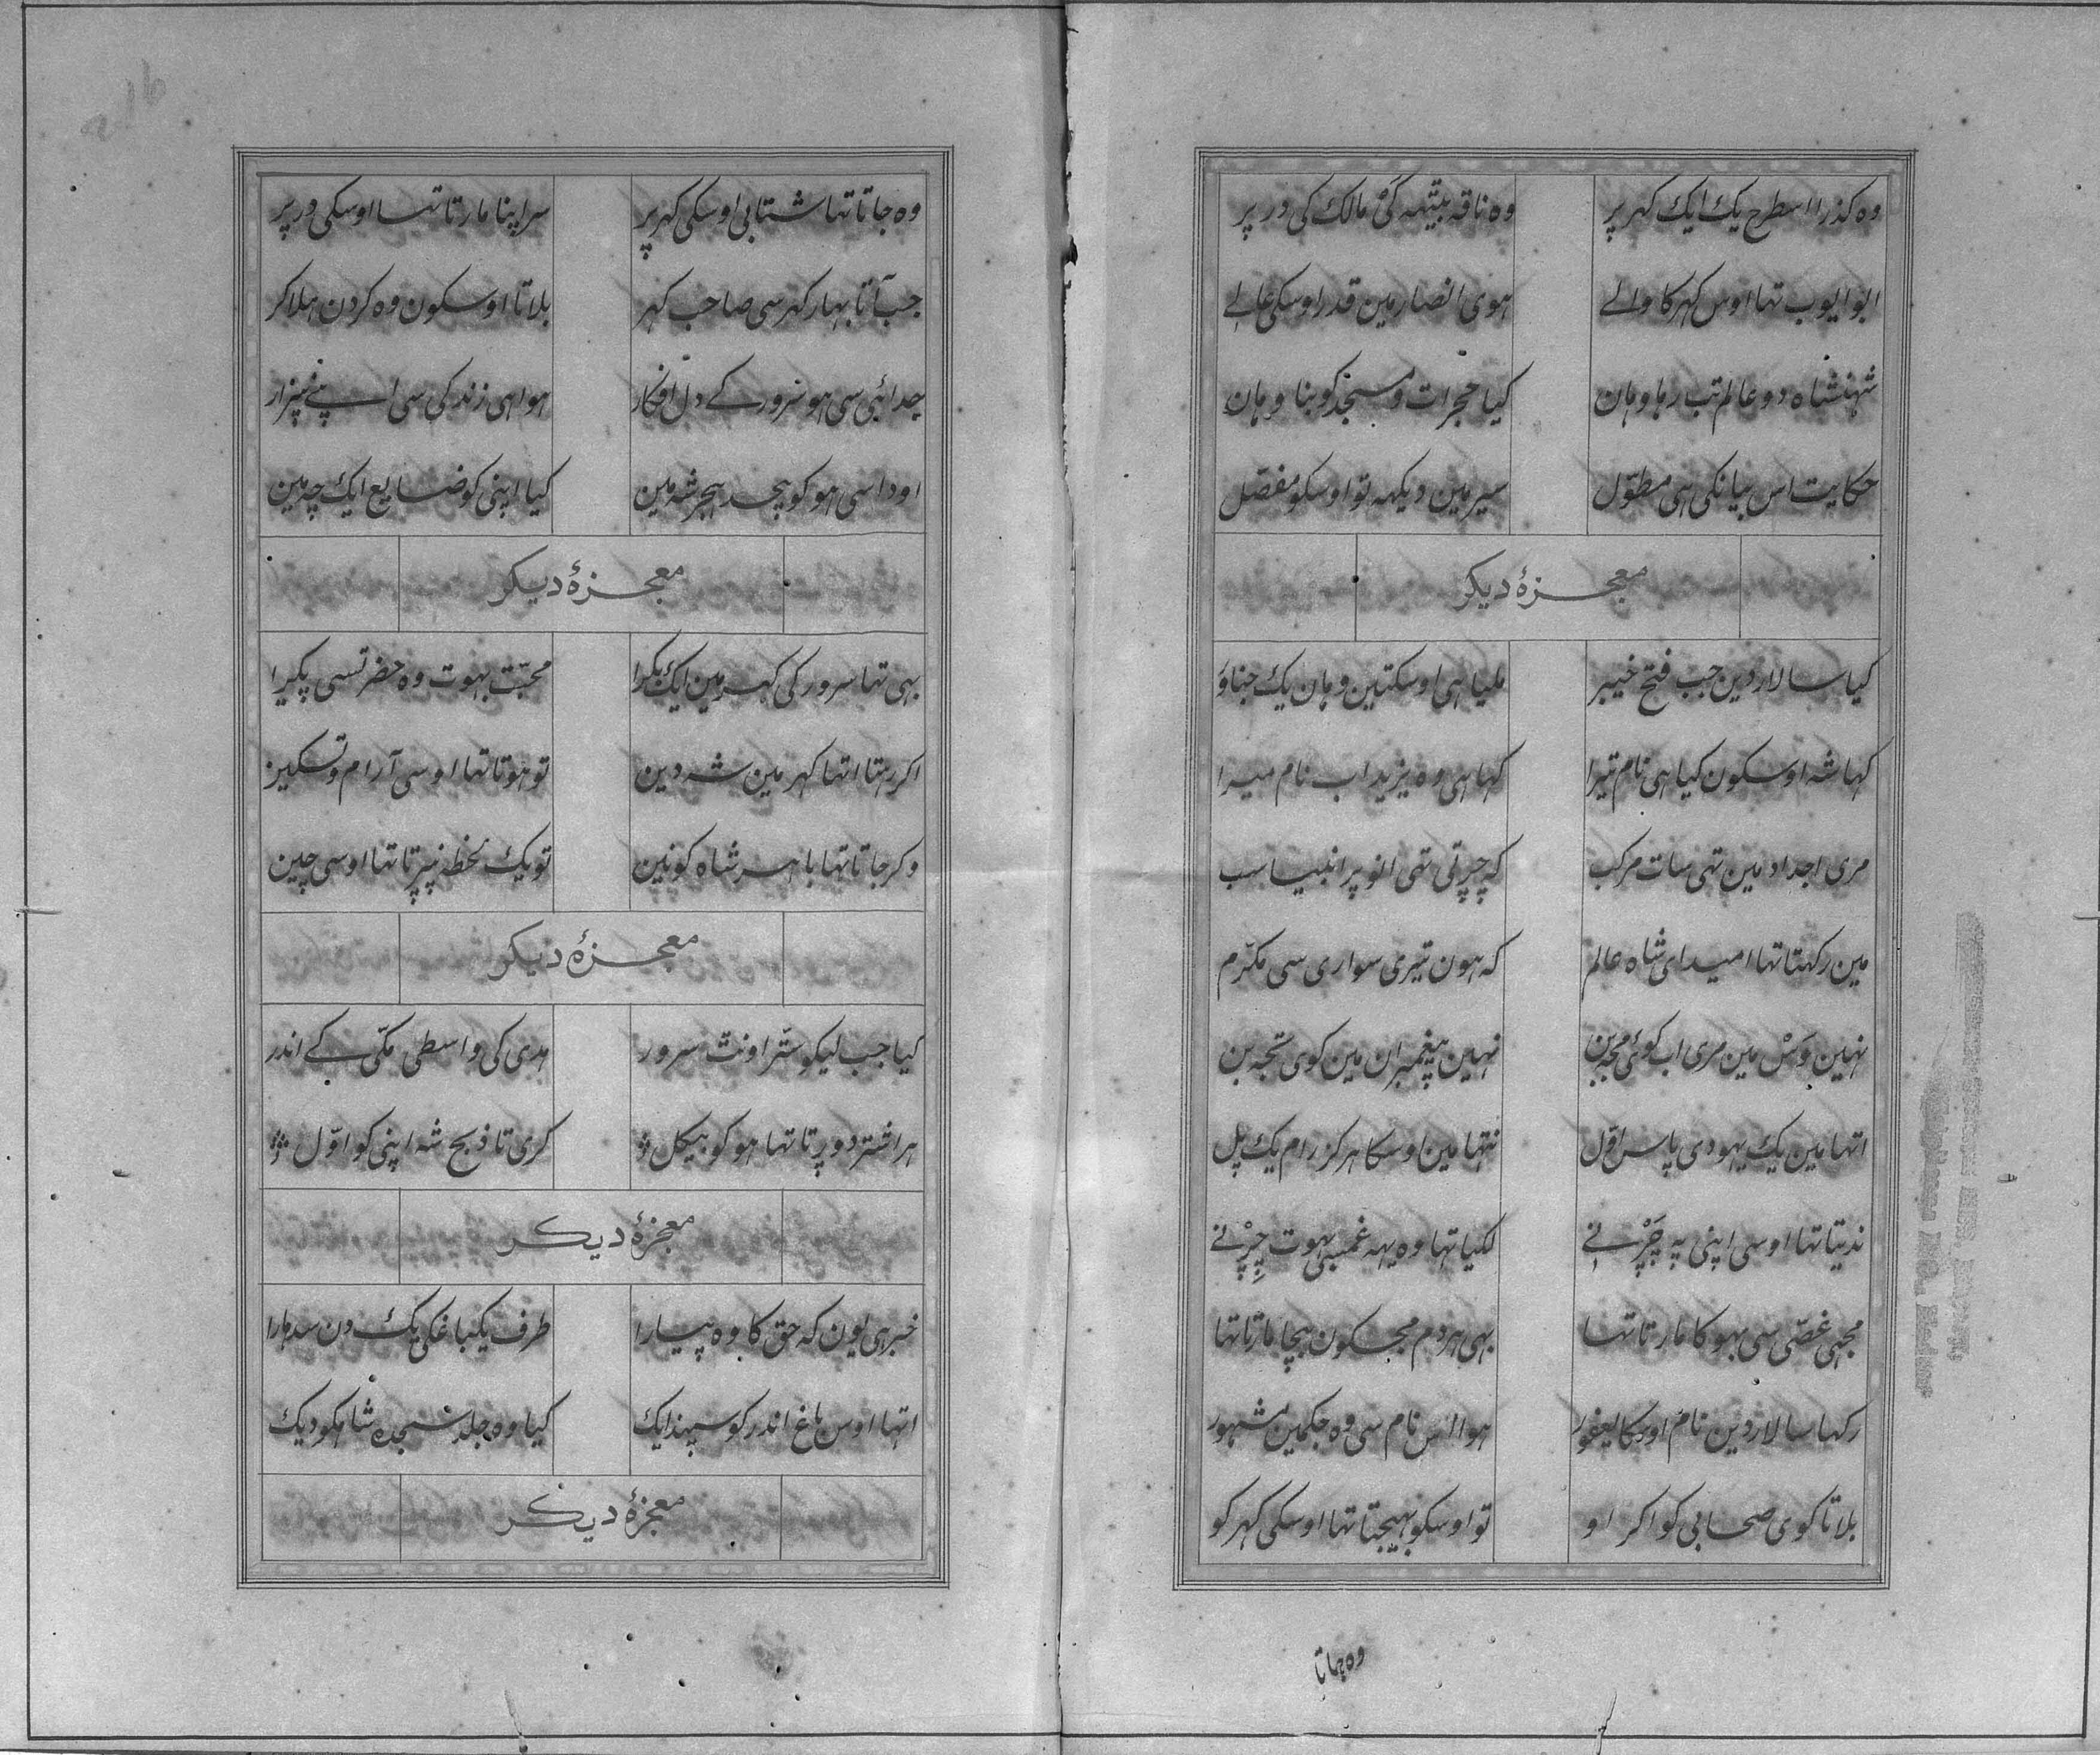 وه کذرا اسطرح یک ایک کهر پر وه ناقه بیتهه کئ مالک کی در پر
ابو ایوب تها اوس کهر کا والے هوی انصار مین قدر اوسکی عالے
شهنشاه دو عالم تب رها وهان کیا حجرات و مسجد کو بنا وهان
حکایت اس بیانکی هی مطوّل سیر مین دیکهه تو اوسکو مفصّل
معجزۀ دیکر
کیا سالار دین جب فتح خیبر ملیا هی اوسکتین وهان یک
کها شه اوسکون کیا هی نام تیرا کها هی وه یزید اب نام میرا
مری اجداد مین تهی سات مرکب که چرتی تهی انو پر انبیا سب
مین رکهتا تها امید ای شاه عالم که هون تیری سواری سی مکرّم
نهین نسْل مین مری اب کوئی مجه بن نهین پیغمبران مین کوی تجه بن
اتها مین یک یهودی پاس اوّل نتها مین اوسکا هرکز رام یک پل
ندیتا تها اوسی اپنی په چَرْنے لکیا تها وه یهه غمسی بهوت چِرْنے
مجهی غصّی سی بهوکا مارتا تها بهی هردم مجکون پچا مارتا تها
رکها سالار دین نام اوسکا یعفور هوا اس نام سی وه جکمین مشهور
بلاتا کوی صحابی کو اکر او تو اوسکو بهیجتا تها اوسکی کهر کو
وه جاتا
وه جاتا تها شتابی اوسکی کهر پر سر اپنا مارتا تها اوسکی در پر
جب آتا بهار کهر سی صاحب کهر بلاتا اوسکون وه کردن هلا کر
جدائی سی هو سرور کے دل افکار هوا هی زندکی سی اپنے بیزار
اوداسی هو کو بیحد هجر شه مین کیا اپنی کو ضایع ایک چه مین
معجزۀ دیکر
بهی تها سرور کی کهر مین ایک بکرا محبّت بهوت وه حضرتسی پکرا
اکر رهتا اتها کهر مین شه دین تو هوتا تها اوسی آرام و تسکین
وکر جاتا تها باهر شاه کونین تو یک لحظه نپرتا تها اوسی چین
معجزۀ دیکر
کیا جب لیکو ستّر اونٹ سرور هدی کی واسطی مکّی کے اندر
هر اشتر دورتا تها هو کو بیکل کری تا ذبح شه اپنی کو اوّل
معجزۀ دیکر
خبر هی یون که حق کا وه پیارا طرف یکباغکی یک دن سدهارا
اتها اوس باغ اندر کوسپند ایک کیا وه جلد سجده شاهکو دیک
معجزۀ دیکر